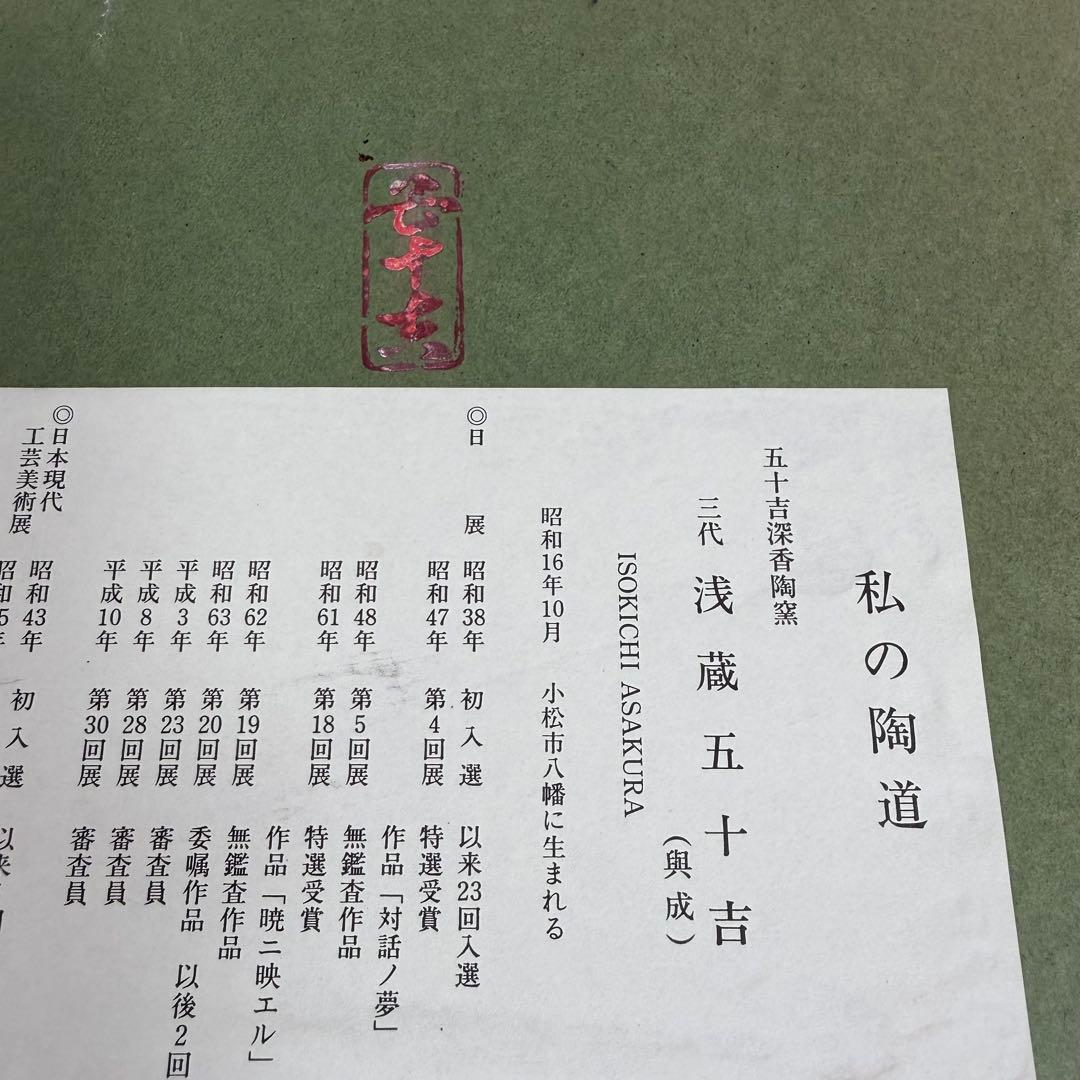 五十吉
私の陶道
五十吉深香陶窯
三代 浅蔵五十吉
(與成)
ISOKICHI ASAKURA
昭和16年10月 小松市八幡に生まれる
◎日 展 昭和38年 初入選 以来23回入選
昭和47年 第4回展 特選受賞
作品「対話ノ夢」
昭和48年 第5回展 無鑑査作品
昭和61年 第18回展 特選受賞
作品「暁ニ映エル」
昭和62年 第19回展 無鑑査作品
昭和63年 第20回展 委嘱作品 以後2回
平成3年 第23回展 審査員
平成8年 第28回展 審査員
平成10年 第30回展 審査員
◎日本現代
工芸美術展
昭和43年 初入選 以来